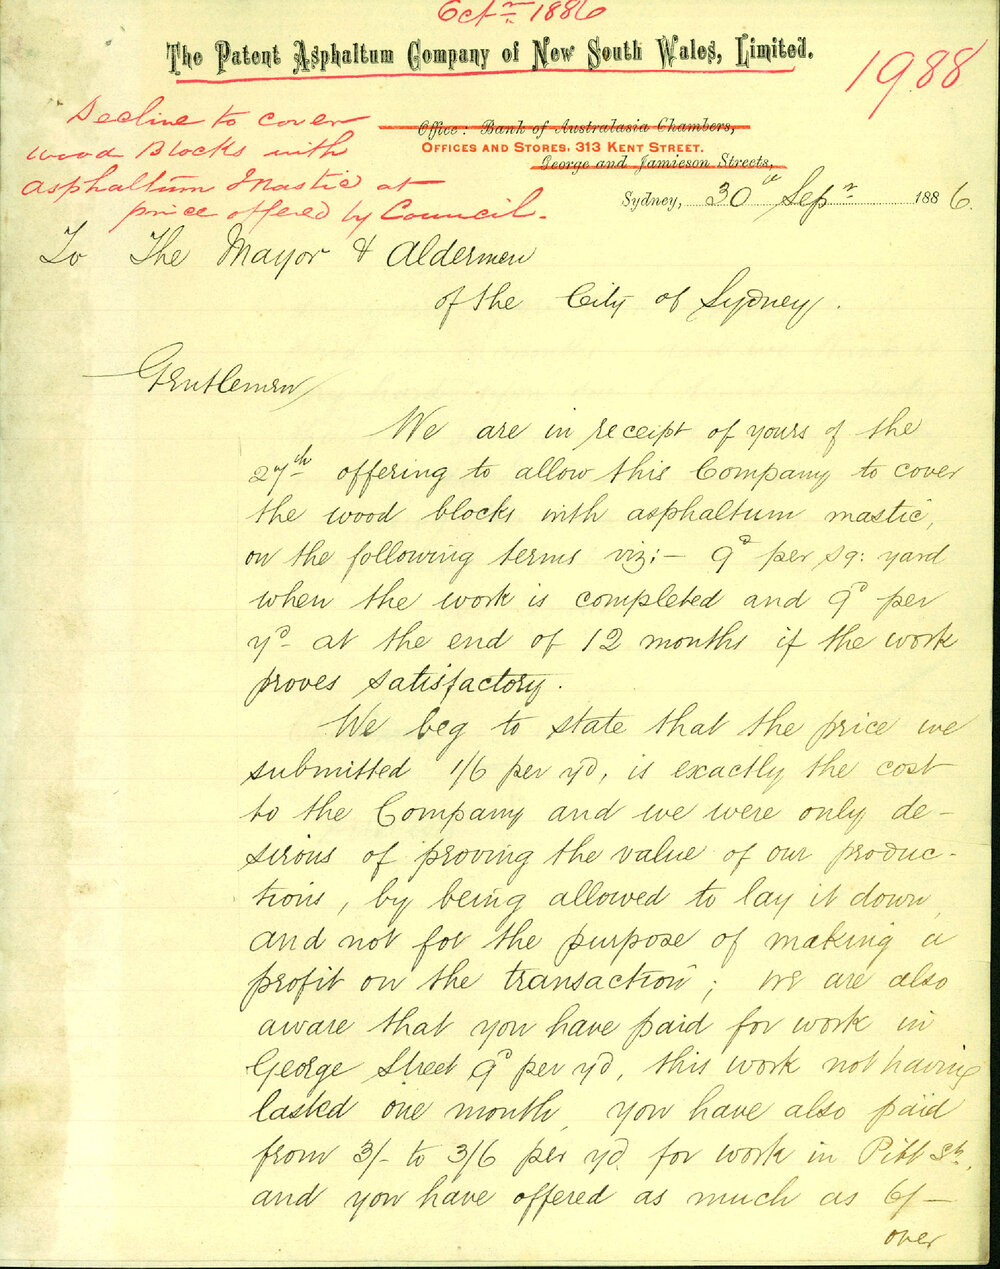 Octr 1886
The Patent Asphaltum Company of New South Wales, Limited.
1988
Decline to cover
wood Blocks with
asphaltum Mastic at
price offered by Council.
Office: Bank of Australasia Chambers,
OFFICES AND STORES, 313 KENT STREET.
George and Jamieson Streets,
Sydney, 30th Sepr 1886.
To The Mayor & Aldermen
of the City of Sydney.
Gentlemen
We are in receipt of yours of the
27th offering to allow this Company to cover
the wood blocks with asphaltum mastic,
on the following terms viz:- 9d per sq: yard
when the work is completed and 9d per
yd at the end of 12 months if the work
proves satisfactory.
We beg to state that the price we
submitted 1/6 per yd, is exactly the cost
to the Company and we were only de-
sirous of proving the value of our produc-
tions, by being allowed to lay it down,
and not for the purpose of making a
profit on the transaction; we are also
aware that you have paid for work in
George Street 9d per yd, this work not having
lasted one month, you have also paid
from 3/- to 3/6 per yd for work in Pitt St.,
and you have offered as much as 6/-
over